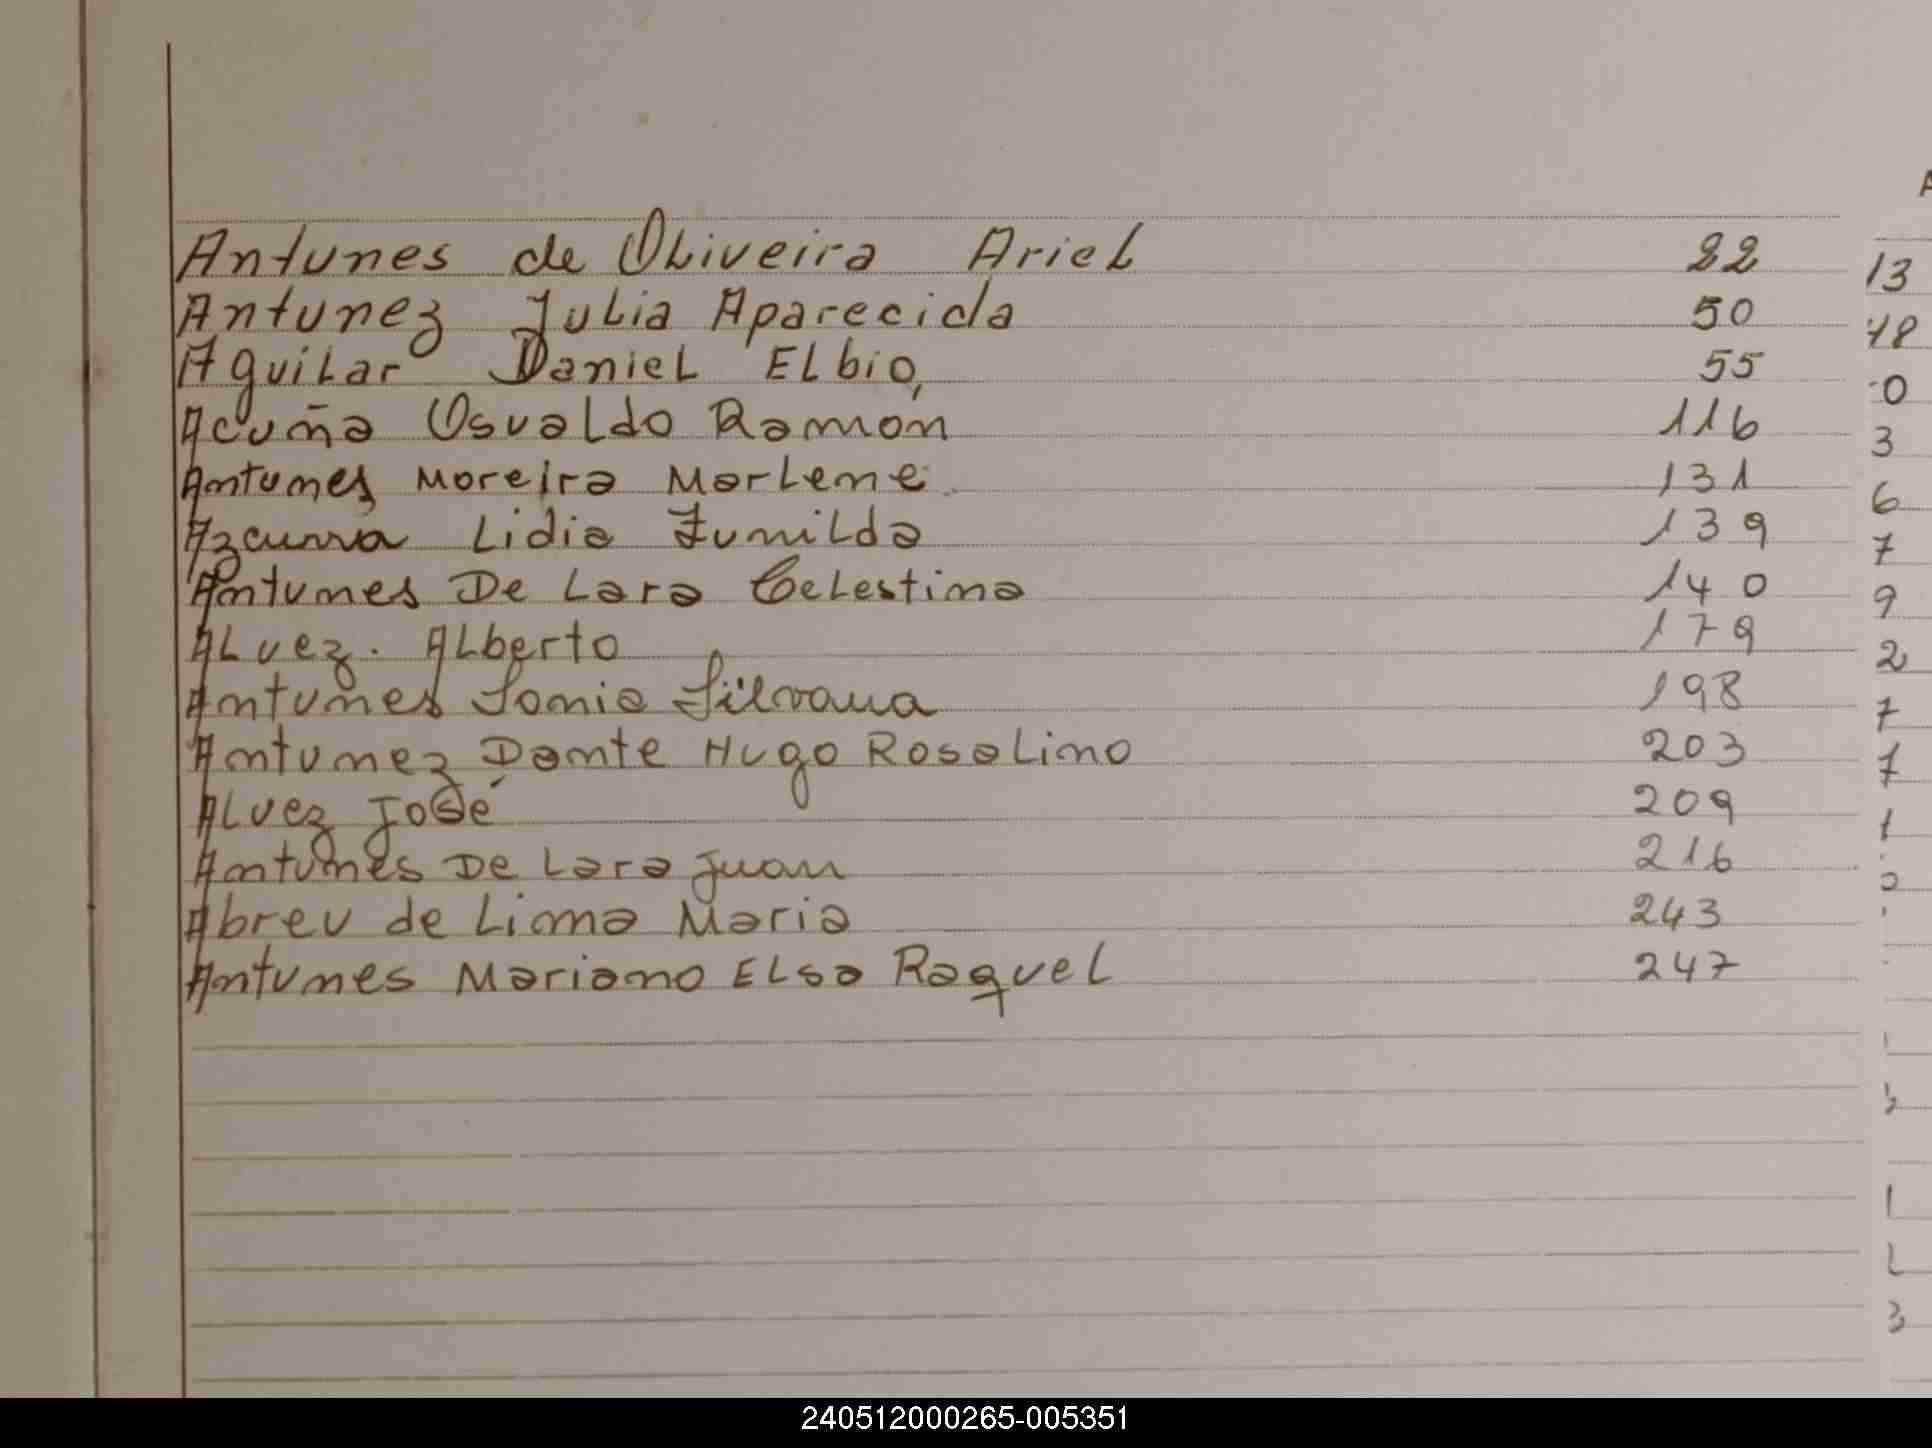 Antunes de Oliveira Ariel 22
Antunez Julia Aparecida 50
Aguilar Daniel Elbio, 55
Acuña Osvaldo Ramón 116
Antunes Moreira Marlene 131
Azcurra Lidia Zunilda 139
Antunes De Lara Celestina 140
Alvez. Alberto 179
Antunes Sonia Silvana 198
Antunez Dante Hugo Rosalino 203
Alvez José 209
Antunes De Lara Juan 216
Abreu de Lima Maria 243
Antunes Mariano Elsa Raquel 247
A
13
48
0
3
6
7
9
2
7
7
1
3
240512000265-005351